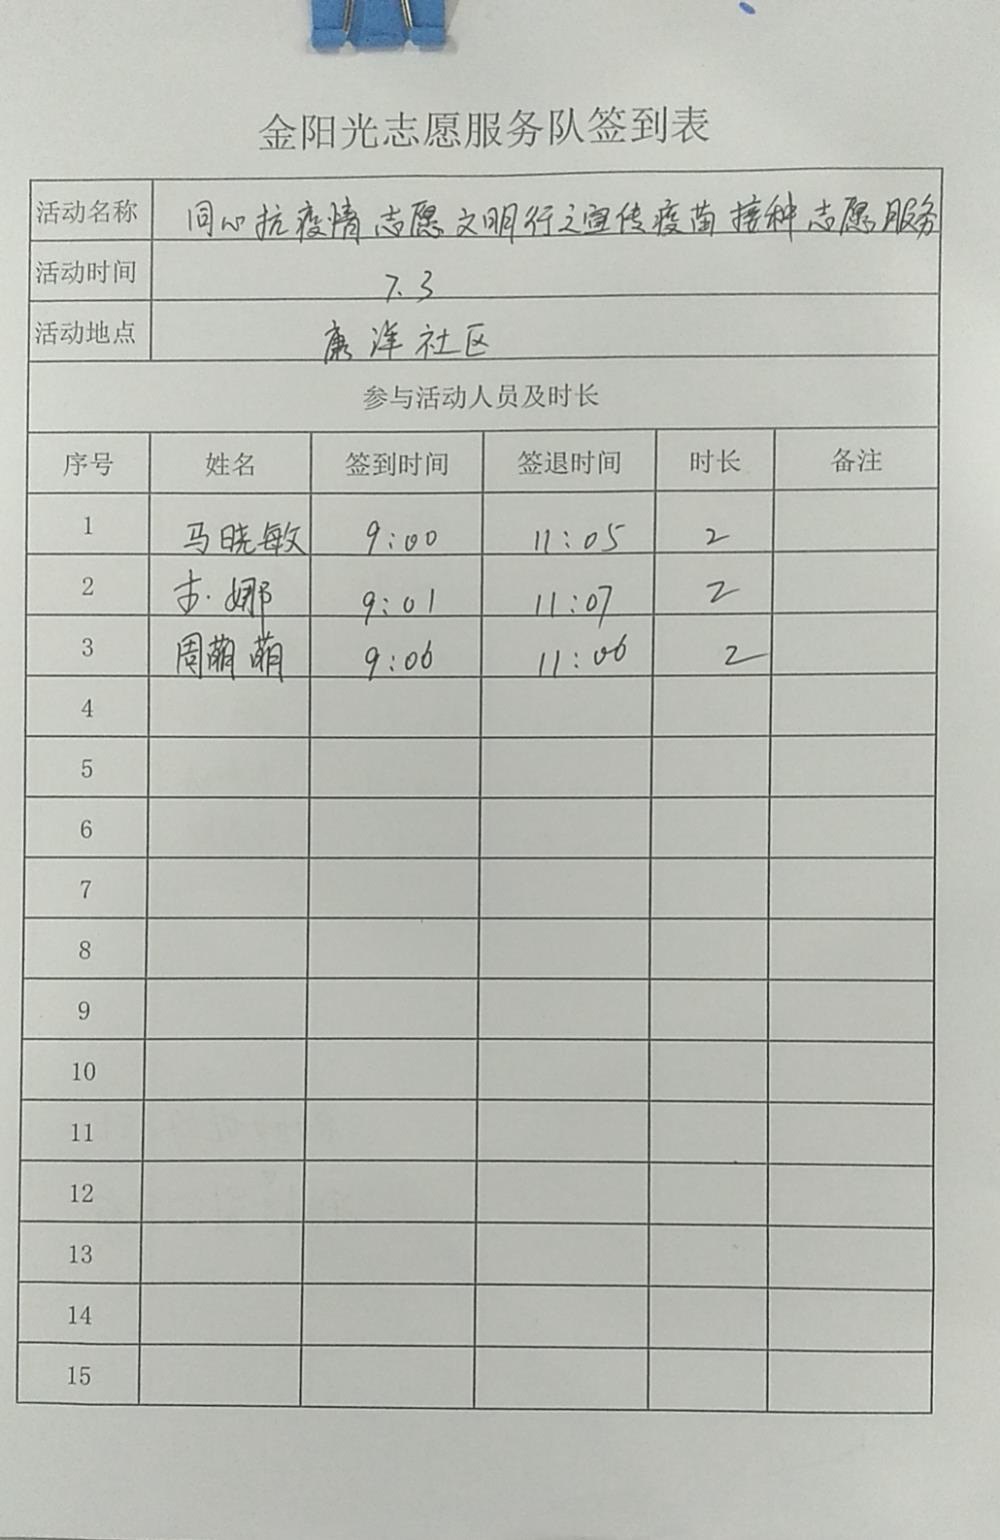 金阳光志愿服务队签到表
活动名称 同心抗疫情志愿文明行之宣传疫苗接种志愿服务
活动时间 7.3
活动地点 康洋社区
参与活动人员及时长
序号 姓名 签到时间 签退时间 时长 备注
1 马晓敏 9:00 11:05 2
2 娜 9:01 11:07 2
3 周萌萌 9:06 11:06 2
4
5
6
7
8
9
10
11
12
13
14
15